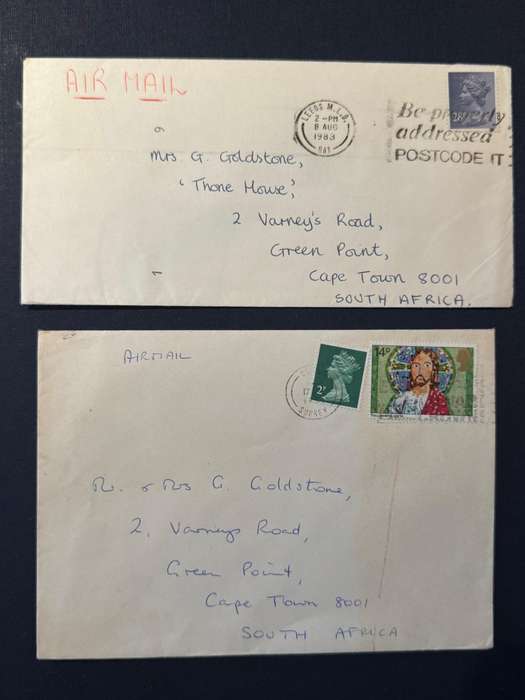 AIR MAIL
LEEDS M.L.O.
2 - PM
8 AUG
1983
Be properly
addressed
POSTCODE IT
Mrs. G. Goldstone,
'Thone House,'
2 Varney's Road,
Green Point,
Cape Town 8001
SOUTH AFRICA.
AIRMAIL
2P
14P
SURREY
Mr. & Mrs G. Goldstone,
2, Varneys Road,
Green Point,
Cape Town 8001
SOUTH AFRICA